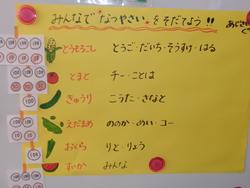 みんなで なつやさい をそだてよう!!
とうもろこし とうご・だいち・そうすけ・はる
とまと チー・ことは
きゅうり こうた・さなと
えだまめ ののか・めい・コー
おくら りと・りょう
すいか みんな
100